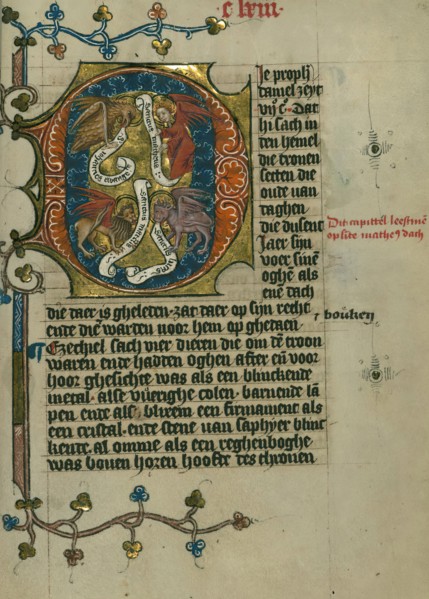 c lxiii
Je prophete
daniel zeyt
vij c. Dat
hi sach in
den hemel
die tronen
setten die
oude van
daghen
die dusent
Jaer sijn
voer sine
oghe als
ene dach
die daer is gheleden. zat daer op sijn rechte
ente die waren voor hem op ghetaen
Ezechiel sach vier dieren die om de troon
waren ende hadten oghen after en voor
hoor ghesichte was als een blinckende
metal. alse vuerighe colen. barnende lam
pen ende alse blixem een firmament als
een cristal. ende stene van saphyer blinc
kende. al omme als een reghenboghe
was bouen horen hoofte des thronen
Dit capittel leestme
op sinte matheus dach
boucken